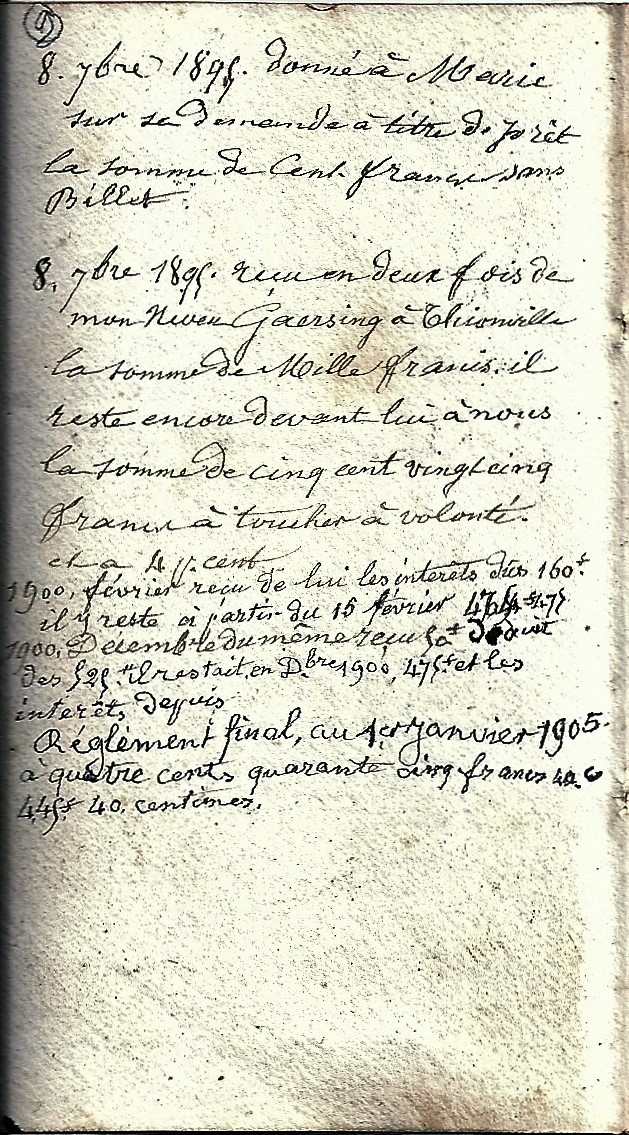 8. 7bre 1895. donné à Marie
sur sa demande à titre de prêt
la somme de Cent francs sans
Billet.
8. 7bre 1895. reçu en deux fois de
mon Neveu Gaersing à Thionville
la somme de Mille francs. il
reste encore devant lui à nous
la somme de cinq cent vingt cinq
francs à toucher à volonté.
et a 4 p. cent
1900, février reçu de lui les intérêts dûs 160f.
il y reste à partir du 15 février 475
1900, Décembre du même reçu 50f déduit
des 525.f Il restait en Dbre 1900, 475f et les
interêts depuis
Réglement final, au 1er Janvier 1905.
à quatre cents quarante cinq francs 40. c
445f 40. centimes.